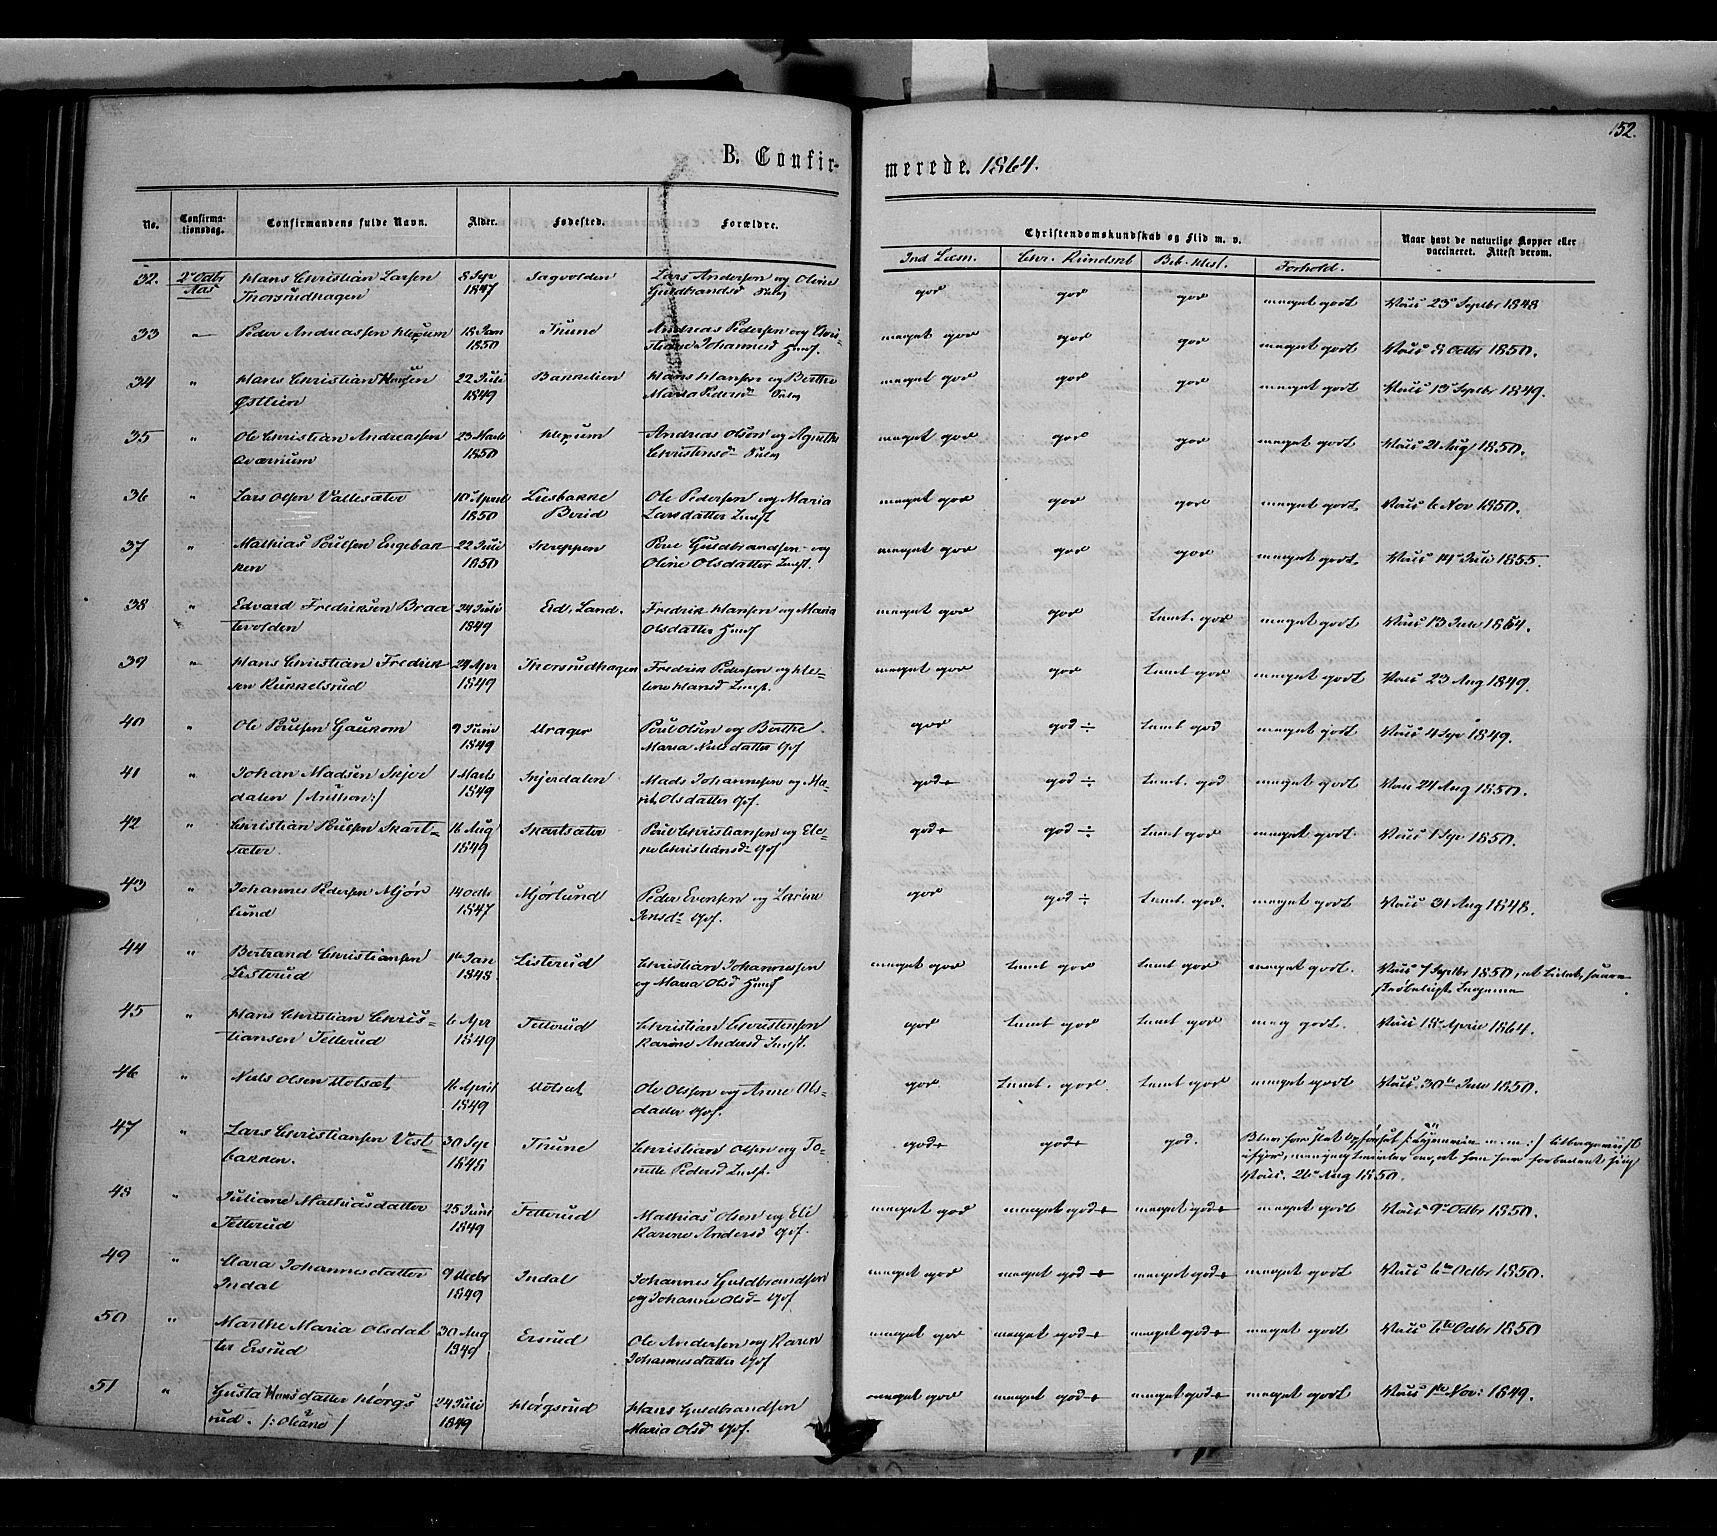 152.
B. Confirmerede. 1864.
No. Confirmationsdag. Confirmandens fulde Navn. Alder. Fødested. Forældre. Christendomskundskab og Flid m. v. Naar havt de naturlige Kopper eller vaccineret. Attest derom.
Ind Læsn. Chr. Kundsk Forhold.
32. 2den Octbr Hans Christian Larsen 8 Sep Sagvolden Lars Andersen og Oline god god god meget godt Vacc 23 Septbr 1848
Aas Thorsrudhagen 1847 Guldbrandsd
33 Peder Andreassen 18 Jan Thune Andreas Pedersen og meget god god god meget godt Vacc 8 Octbr 1850.
1850 Johannesd
34 " Hans Christian Hansen 22 Juli Bakkelien Hans Hansen og Berthe meget god god god meget godt Vacc 13 Septbr 1849.
Østlien 1849 Maria Pedersd
35 " Ole Christian Andreassen 23 Marts Andreas Olsen og Agnethe meget god god god meget godt Vacc 21 Aug 1850.
Qværnum 1850
36 " Lars Olsen Vallesæter 10 April Liesbakke Ole Pedersen og Maria meget god god god meget godt. Vacc 6 Nov 1850.
1850 Berid Larsdatter
37 " Mathias Poulsen Engebak 22 Juli Skreppen Guldbrandsen og meget god god god meget godt. Vacc 14 Juli 1855.
ken 1850 Oline Olsdatter
38 " Edvard Fredriksen Braa 24 Juli Eid, Land. Fredrik Hansen og Maria meget god god Temt. god meget godt Vacc 13 Juni 1864.
tevolden 1849 Olsdatter
39 " Hans Christian Fredrik 24 Apr Thorsrudhagen Fredrik Pedersen og He- meget god god Temt god meget godt Vacc 23 Aug 1849.
sen Kukkelsrud 1849 lene Hansd
40 " Ole Poulsen Gaukom 9 Juni Poul Olsen og Berthe god god ÷ Temt god meget godt Vacc 4 Sep 1849.
1849 Maria Nielsdatter Gof
41 " Johan Madsen Skjer 1 Marts Skjerdalen Mads Johannesen og Ma- god+ god ÷ Temt. god meget godt Vacc 24 Aug 1850.
dalen 1849 rit Olsdatter Gof.
42 " Christian Poulsen Skart- 16 Aug Skartsæter Poul Christiansen og Ele- god+ god ÷ Temt god meget godt. Vacc 1 Sep 1850.
sæter. 1849 ne Christiansd Gof
43 " Johannes Pedersen Mjør 14 Octr Mjørlund Peder Evensen og god god ÷ Temt. god. meget godt Vacc 31 Aug 1848.
lund 1847 Jensd Gof.
44 " Bertrand Christiansen Jan Listerud Christian Johannessen meget god Temt god Temt god meget godt. Vacc 7 Septbr 1850,
Listerud 1848. og Maria Olsd
45 " Hans Christian Chris- 6 Apr Tetterud Christian Christensen god Temt god Temt god meg godt. Vacc 18 April 1864.
tiansen Tetterud 1849 Karine Andersd
46 " Niels Olsen Holsæt 16 April Holsæt Ole Olsen og Anne Ols- god Temt. god Temt god meget godt Vacc. 30te Juni 1850.
1849 datter Gof.
47 " Lars Christiansen Vest 30 Sep Thune Christian Olsen og To- god+ god+ god.
bakken. 1848 Pedersd Vacc. 26 Aug 1850.
48 " Juliane Mathiasdatter 25 Juni Tetterud Mathias Olsen og Eli meget god meget god+ meget god+ meget godt Vacc 9 Octbr 1850.
Tetterud 1849 Karine Andersd Gof.
49 " Johannesdatter 9 Indal Johannes Guldbrandsen meget god meget god + meget god+ meget godt Vacc 6te Octbr 1850.
Indal 1849 og Johanne Olsd Gof
50 " Marthe Maria Olsdat 30 Aug Ersrud Ole Andersen og Karen meget god meget god+ meget god+ meget godt Vacc 6te Octbr 1850
ter Ersrud 1849 Johannesdatter Gof
51 " Gusta Hansdatter Hørgs 24 Juli Hørgsrud Hans Guldbrandsen meget god meget god+ meget god+ meget godt Vacc Nov: 1849.
rud. 1849 Maria Olsd Gof.